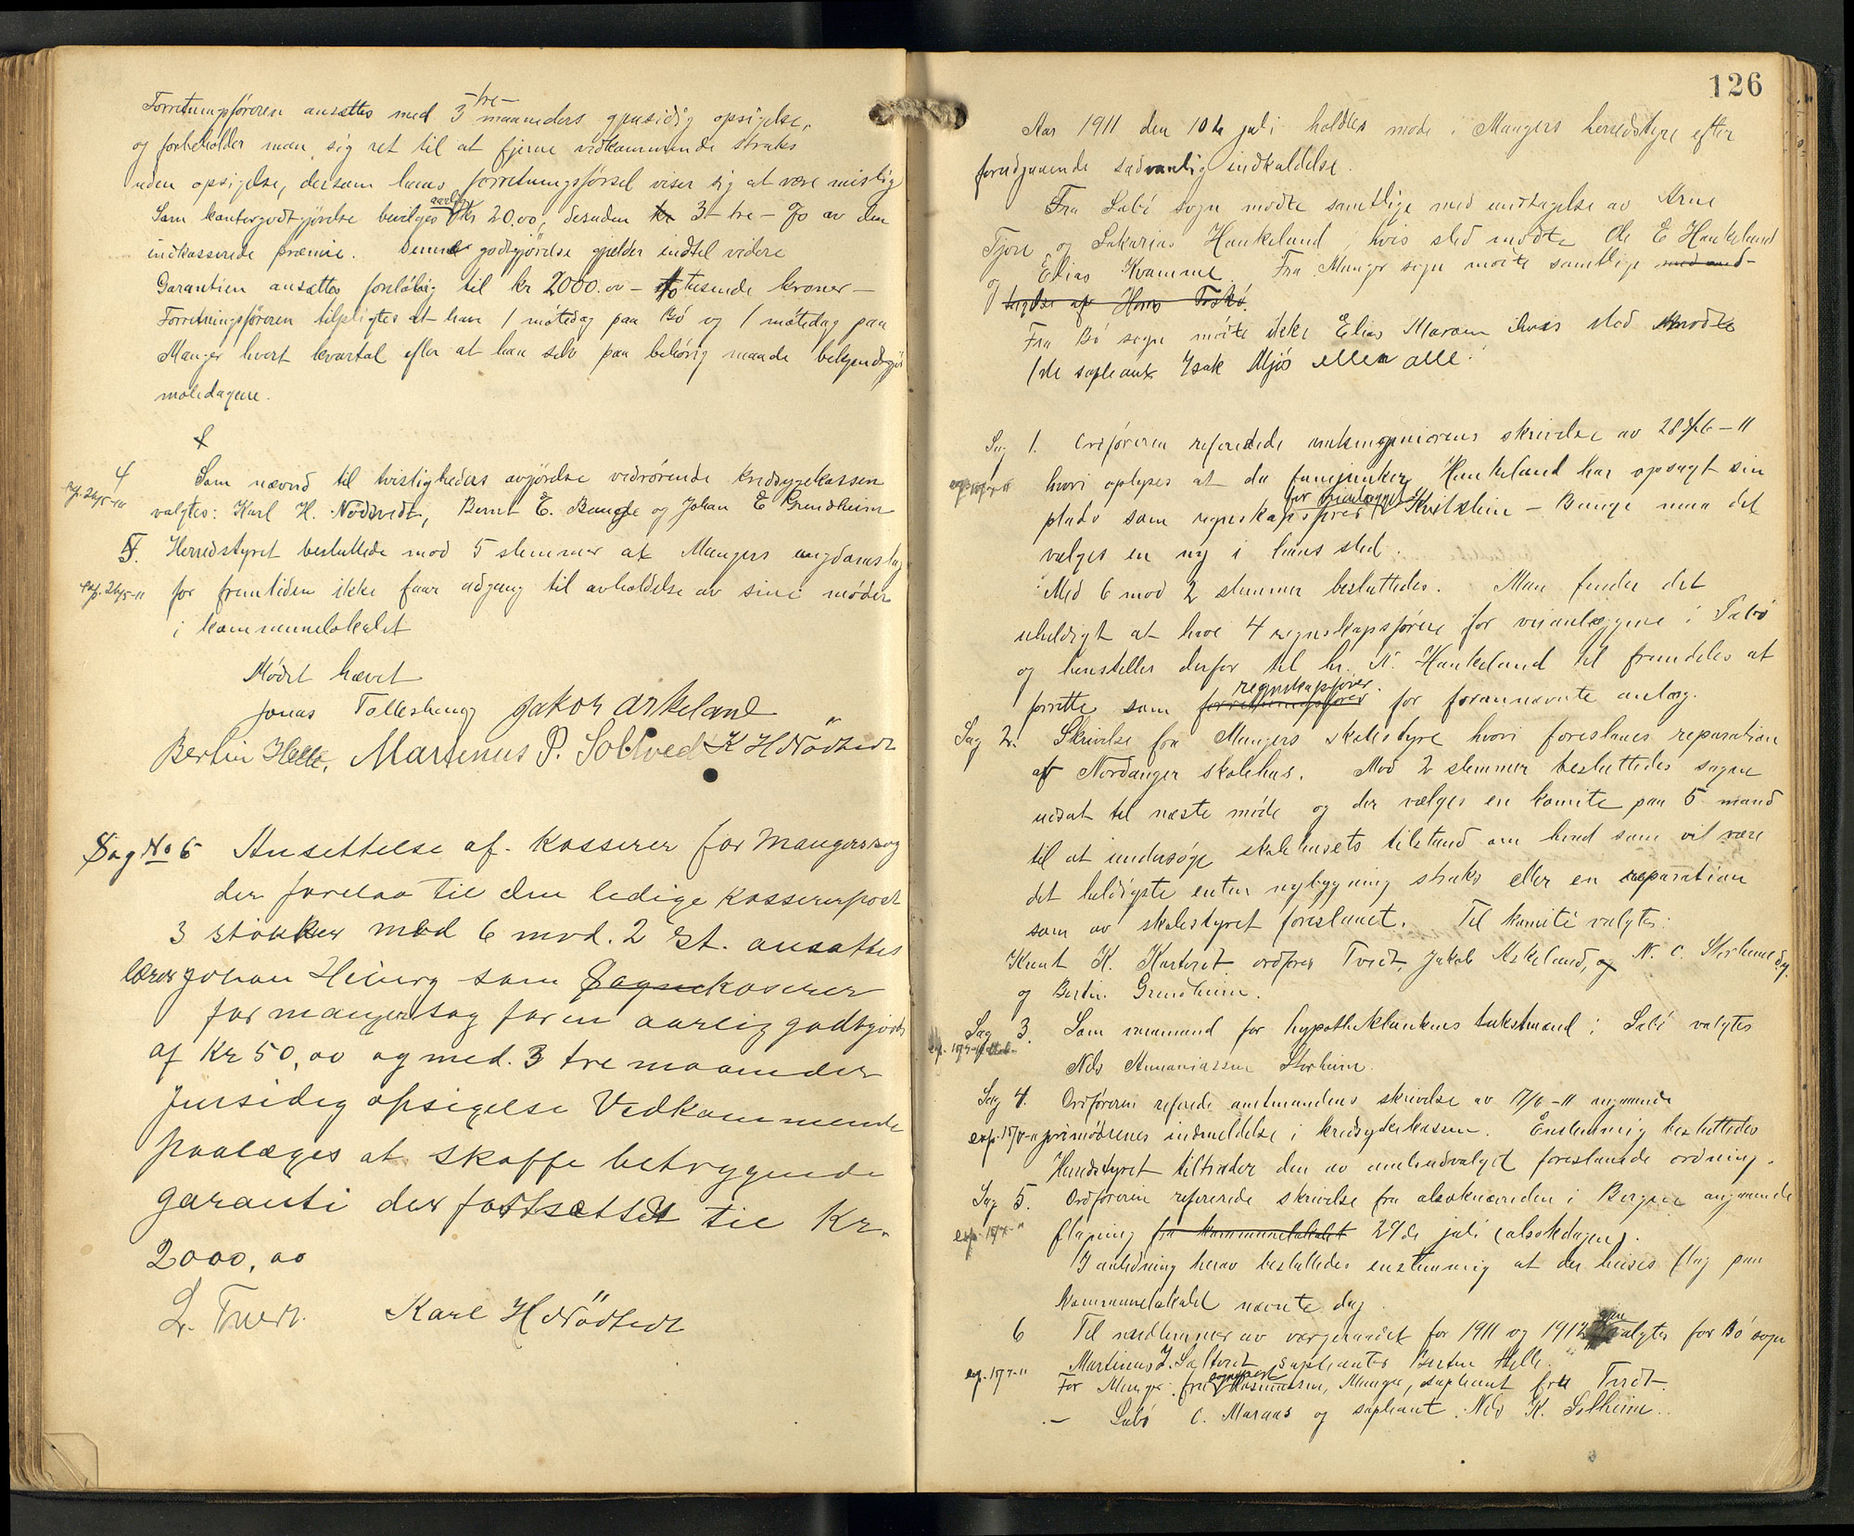 Forretningsføreren ansættes med 3 -tre- maaneders gjensidig opsigelse,
og forbeholder man sig ret til at fjerne vedkommende straks
uden opsigelse, dersom hans forretningsførsel viser sig at være mislig
Som kontorgodtgjørelse bevilges aarlig Kr 20.00, desuden kr 3 - tre - % av den
indkasserede præmie. Denne godtgjørelse gjelder indtil videre
Garantien ansættes foreløbig til kr 2000.00 - to tusende kroner -
Forretningsføreren tilpligtes at han 1 møtedag paa Bø og 1 møtedag paa
Manger hvert kvartal efter at han selv paa behørig maade bekjendtgjør
møtedagene.
4
exp. 26/5-11
Som nævnd til tvistigheders avgjørelse vedrørende kredssygekassen
valgtes: Karl H. Nødtvedt, Bernt E. Bauge og Johan E Grendheim
5. Herredstyret besluttede mod 5 stemmer at Mangers ungdomslag
exp. 26/5-11 for fremtiden ikke faar adgang til avholdelse av sine møder
i kommunelokalet
Mødet hævet
Jonas Tolleshaug Jakob Askeland
Bertin Helle, Martinus P. Soltved K H Nødtvedt
Sag No 6 Ansettelse af Kasserer for Mangersog
der forelaa til den ledige Kassererpost
3 støkker med 6 mod. 2 st. ansattes
lærer Johan Heinrg som Sognekaserer
for mangersog for en aarlig godtgjørels
af Kr 50,00 og med 3 tre maaneder
jensidig opsigelse Vedkommende
paalæges at skaffe betryggende
garanti der fastsættes til Kr.
2000,00
L. Tvedt. Karl H Nødtvedt
126
Aar 1911 den 10de juli holdtes møde i Mangers herredstyre efter
foredgaaende sedvanlig indkaldelse.
Fra Sæbø sogn mødte samtlige med undtagelse av Arne
Tjore og Sakarias Haukeland, hvis sted mødte Ole E Haukeland
og Elias Kvamme. Fra Manger sogn mødte samtlige med und-
tagelse af Hans Toskø.
Fra Bø sogn mødte ikke Elias Marøen ihvis sted mødte
1ste supleant Isak Mjøs ellers alle.
Sag 1. Ordføreren refererede amtsingeniørens skrivelse av 28/6-11
hvori oplyses at da fanejunker Haukeland har opsagt sin
plads som regnskapsfører for veianlegget Kvitstein - Bauge maa det
vælges en ny i hans sted.
Med 6 mod 2 stemmer besluttedes. Man finder det
uheldigt at have 4 regnskapsførere for veianlæggene i Sæbø
og henstiller derfor til hr. N. Haukeland til fremdeles at
forrette som forretningsfører regnskapsfører for forannævnte anlæg.
Sag 2. Skrivelse fra Mangers skolestyre hvori foreslaaes reparation
af Nordanger skolehus. Mod 2 stemmer besluttedes sagen
udsat til næste møde og der vælges en komite paa 5 mand
til at undersøge skolehusets tilstand om hvad som vil være
det heldigste enten nybygning straks eller en reparation
som av skolestyret foreslaaet. Til komite valgtes:
Knut K. Kartveit ordfører Tvedt, Jakob Askeland, og N. C. Storheim
og Bertin Grendheim.
Sag 3. Som varamand for hypothekbankens takstmænd i Sæbø valgtes
Nils Ananiassen Storheim.
Sag 4. Ordføreren referede amtmandens skrivelse av 17/6-11 angaaende
jordmødrenes indmeldelse i kredssykekassen. Enstemmig besluttedes
Herredstyret tiltræder den av amtsudvalget foreslaaede ordning.
Sag 5. Ordføreren refererede skrivelse fra olsoknævnden i Bergen angaaende
flagning fra kommunelokalet 29de juli (olsokdagen).
I anledning herav besluttedes enstemmig at der heises flag paa
kommunelokalet nævnte dag
6 Til medlemmer av værgeraadet for 1911 og 1912 valgtes for Bø sogn
Martinus J. Soltveit supleanter Bertin Helle.
For Manger: fru Rasmussen, Manger, supleant fru Tvedt.
- Sæbø O. Maraas og supleant Nils K. Solheim.